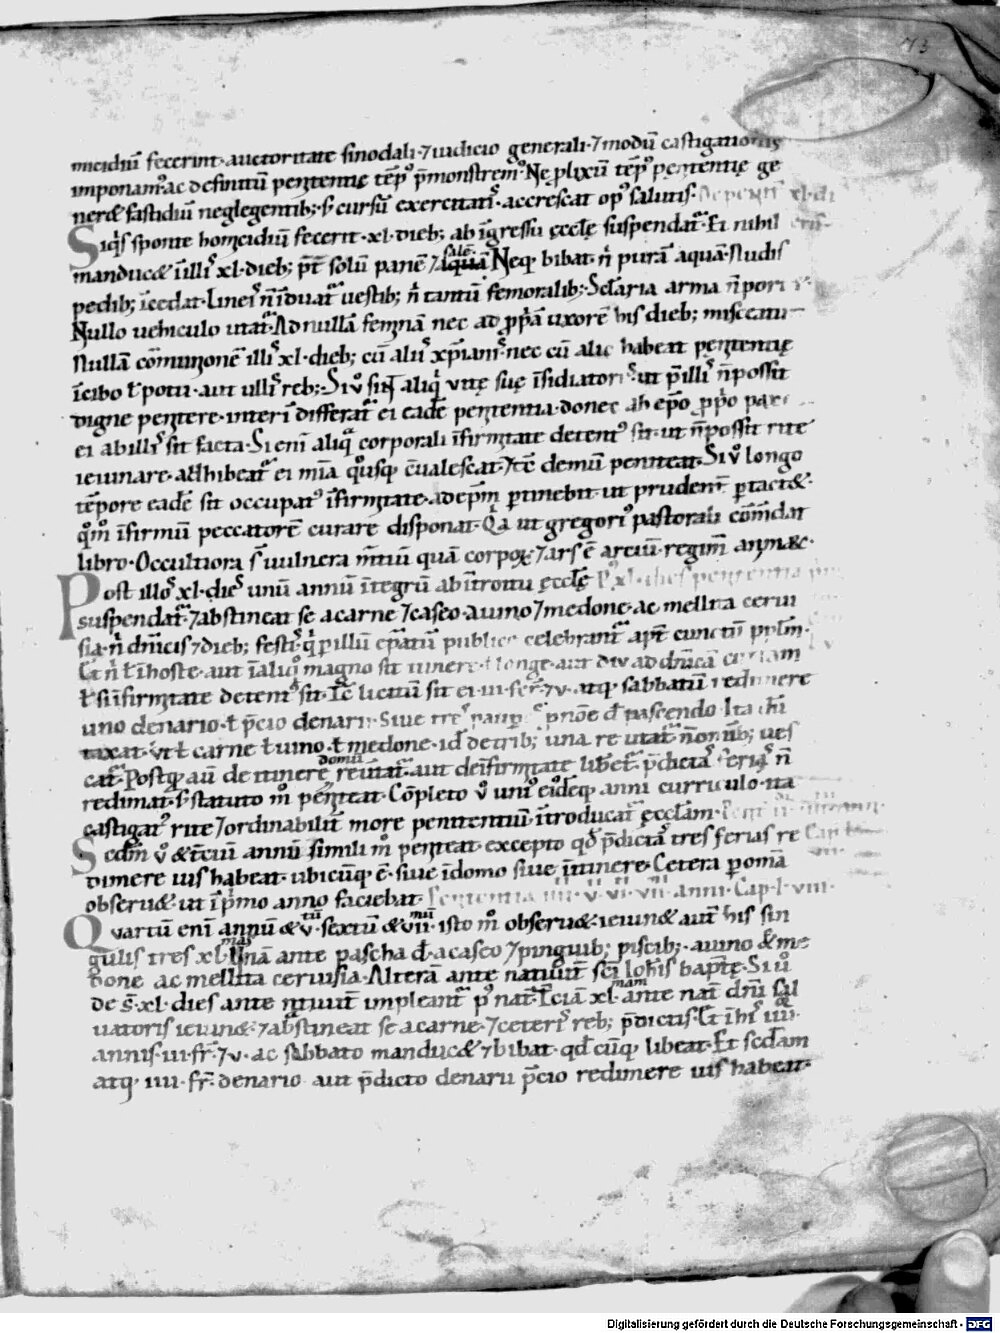 micidiū fecerint· auctoritate sinodali· ⁊ iudicio generali· ⁊ modū castigationis
imponam⁹· ac definitū penitentię tēp⁹ p̄monstrem⁹· Ne plixū tēp⁹ penitentię ge
ner& fastidiū neglegentib; s; cursū exercitati⁹· accrescat op⁹ salutis· De penit xl· di
Siq̄s sponte homicidiū fecerit· xl· dieb; ab īgressu ęcclę suspendat̄· Et nihil
manduc& ī illis xl· dieb; p̄t solū panē ⁊ salē· aquā Neq; bibat n̄ purā aquā· Nudis
pedib; īcedat· Lineis n̄ īduat̄ uestib; n̄ tantū femoralib; Sclaria arma n̄ port
Nullo uehiculo utat̄· Ad nullā feminā nec ad ppā uxorē his dieb; misceatur
Nullā cōmunionē illis xl· dieb; cū aliis xpianis· nec cū alio habeat penitentię
ī cibo ł potu· aut ullis reb; Si ů sint aliq̄ uitę suę īsidiatores ut p̄ illis n̄ possit
digne penitere· interī differat̄ ei eadē penitentia· donec ab ep̄o pprio pax
ei ab illis sit facta· Si enī aliq̄ corporali īfirmitate detent⁹ sit· ut n̄ possit rite
ieiunare· adhibeat̄ ei mīa q̊usq; cūalescat· ⁊ tē demū peniteat· Si ů longo
tēpore eadē sit occupat⁹ īfirmitate· ad ep̄m ptinebit· ut prudent̄ ptact&·
q̊m̊ īfirmū peccatorē curare disponat· Q̄a ut gregori⁹ pastorali cōm̄dat
libro· Occultiora s̄ uulnera mtiū quā corpoꝝ ⁊ ars ē artiū· regim̄ animaꝝ·
Post illos xl· dies unū annū ītegrū ab ītroitu ęcclę P⁹ xl· dies penitentia
suspendat̄· ⁊ abstineat se a carne ⁊ caseo· a uino ⁊ medone· ac mellita cerui
sia· n̄ dn̄icis ⁊ dieb; festis q̄ p illū ep̄atū publice celebrant̄ apt̄ cunctū pplm̄·
Et n̄ ł ī hoste· aut ī aliq̊ magno sit itinere· ł longe· aut diu ad dn̄icā curiam
ł sit īfirmitate detent⁹ sit· Tc̄ licitū sit ei· iii· fer̄· ⁊ v· atq; sabbatū redimere
uno denario· ł p̄cio denarii· Siue tres paup pn̄oe dī pascendo· Ita dn̄
taxat· ut ł carne ł uino· ł medone· id; de trib; una re utat̄· n̄ omnib; ues
cat̄· Postq; aū de itinere domū reuitat̄· aut de īfirmitate libet̄· p̄dictas ferias n̄
redimat· s; statuto m̊ peniteat· Cōpleto ů uni⁹ ei⁹deq; anni curriculo· ita
castigat⁹ rite ⁊ ordinabilit̄ more penitentiū· ītroducat̄ ęcclam·
Scdm̄ ů & t̄ciū annū simili m̊ peniteat· excepto qd̄ p̄dictas tres ferias re
dimere uis habeat· ubicūq; ē· siue ī domo siue ī itinere· Cetera p omā
obseru& ut ī pmo anno faciebat· Penitentia iiii· v· vi· vii· anni· Cap· l· viii·
Quartū enī annū & v tū· sextū & vii mū· isto m̊ obseru&· ieiun& autē his sin
gulis tres xl mas· Unā ante pascha dī a caseo ⁊ pinguib; piscib; a uino & me
done ac mellita ceruisia· Alterā ante natiuit̄ sc̄i iohis bapt̄ę· Si ů
de s̄· xl· dies ante ntiuit̄ impleant̄ p⁹ nat̄· T̄ciā xl mam ante nat̄ dn̄i sal
uatoris ieiun& ⁊ abstineat se a carne· ⁊ ceteris reb; p̄dictis· Et ī his iiii·
annis· iii· fr̄· ⁊ v· ac sabbato manduc& ⁊ bibat· qd̄ cūq; libeat· Et scdam
atq; iiii· fr̄· denario aut p̄dicto denarii p̄cio redimere uis habeat·
Digitalisierung gefördert durch die Deutsche Forschungsgemeinschaft - DFG